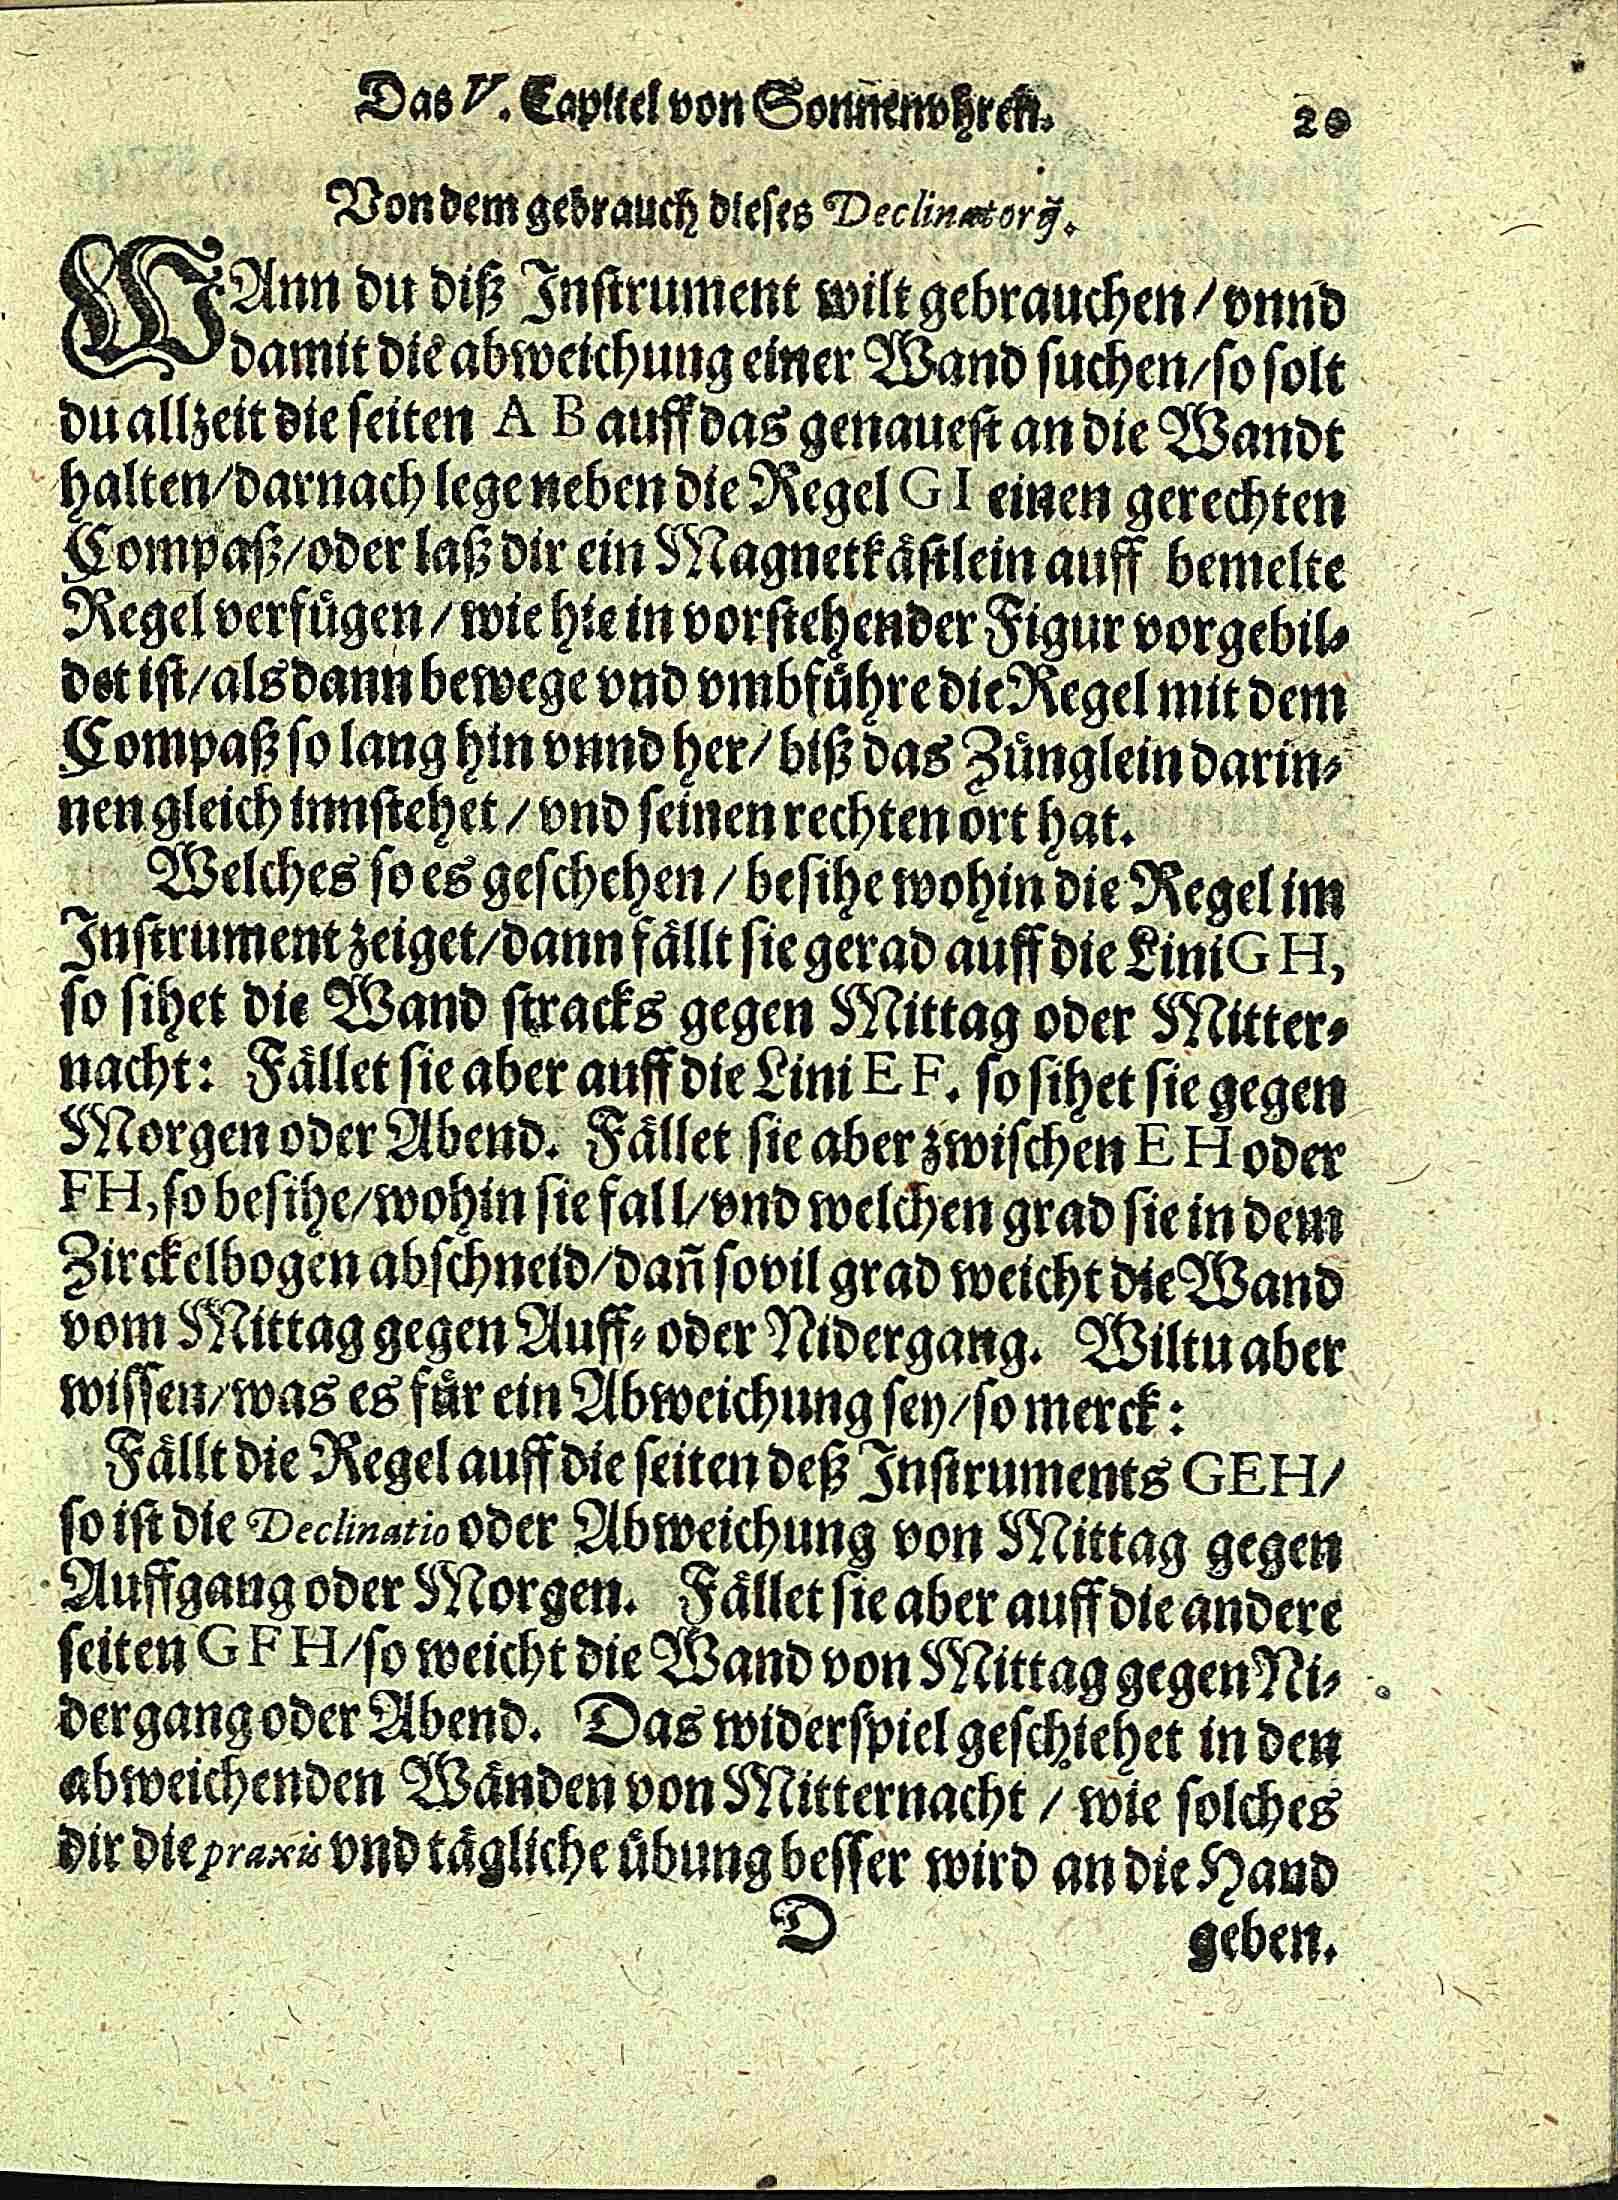 Das V. Capittel von Sonnenvhren. 20
Von dem gebrauch dieses Declinatorÿ.
WAnn du diß Instrument wilt gebrauchen / vnnd
damit die abweichung einer Wand suchen / so solt
du allzeit die seiten A B auff das genauest an die Wandt
halten / darnach lege neben die Regel G I einen gerechten
Compaß / oder laß dir ein Magnetkaͤstlein auff bemelte
Regel verfuͤgen / wie hie in vorstehender Figur vorgebil-
det ist / als dann bewege vnd vmbfuͤhre die Regel mit dem
Compaß so lang hin vnnd her / biß das Zuͤnglein darin-
nen gleich innstehet / vnd seinen rechten ort hat.
Welches so es geschehen / besihe wohin die Regel im
Instrument zeiget / dann faͤllt sie gerad auff die Lini G H,
so sihet die Wand stracks gegen Mittag oder Mitter-
nacht: Faͤllet sie aber auff die Lini E F. so sihet sie gegen
Morgen oder Abend. Faͤllet sie aber zwischen E H oder
FH, so besihe / wohin sie fall / vnd welchen grad sie in dem
Zirckelbogen abschneid / dañ sovil grad weicht die Wand
vom Mittag gegen Auff- oder Nidergang. Wiltu aber
wissen / was es fuͤr ein Abweichung sey / so merck:
Faͤllt die Regel auff die seiten deß Instruments GEH /
so ist die Declinatio oder Abweichung von Mittag gegen
Auffgang oder Morgen. Faͤllet sie aber auff die andere
seiten G F H / so weicht die Wand von Mittag gegen Ni-
dergang oder Abend. Das widerspiel geschiehet in den
abweichenden Waͤnden von Mitternacht / wie solches
dir die praxis vnd taͤgliche uͤbung besser wird an die Hand
D geben.